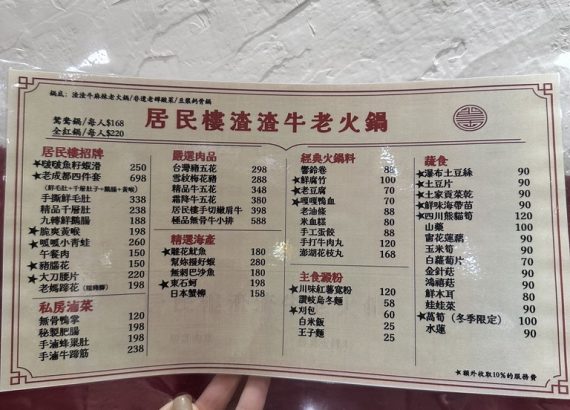 鍋底:渣渣牛麻辣老火鍋/巷邊老罈酸菜/豆漿鈣骨鍋
鴛鴦鍋/每人$168
全紅鍋/每人$220
居民樓渣渣牛老火鍋
居民樓招牌
★啵啵魚籽蝦滑 250
★老成都四件套 698
(鮮毛肚+千層肚子+鵝腸+黃喉)
手撕鮮毛肚 338
精品千層肚 238
九轉鮮鵝腸 188
★脆爽黃喉 198
★呱呱小青蛙 260
午餐肉 150
★豬腦花 150
★大刀腰片 220
老媽蹄花 198
私房滷菜
無骨鴨掌 120
秘製肥腸 198
手滷蜂巢肚 198
手滷牛蹄筋 238
嚴選肉品
台灣豬五花 298
雪紋梅花豬 288
精品牛五花 348
霜降牛五花 380
居民樓手切嫩肩牛 398
極品無骨牛小排 588
精選海產
★雕花魷魚 180
幫妳撥好蝦 280
無刺巴沙魚 180
★東石蚵 198
日本蟹柳 158
經典火鍋料
響鈴卷 88
★鮮腐竹 100
★老豆腐 70
★嘎嘎鴨血 70
老油條 88
米血糕 80
手工蛋餃 88
手打牛肉丸 120
澎湖花枝丸 168
主食澱粉
★川味紅薯寬粉 120
讚岐烏冬麵 58
★刈包 60
白米飯 25
王子麵 25
蔬食
★瀑布土豆絲 90
★土豆片 90
★土家貢菜乾 90
★鮮味海帶苗 90
★四川熊貓筍 120
山藥 100
雷花蓮藕 90
玉米筍 90
白蘿蔔片 70
金針菇 90
鴻禧菇 90
鮮木耳 80
娃娃菜 90
★萵筍(冬季限定) 100
水蓮 90
*額外收取10%的服務費